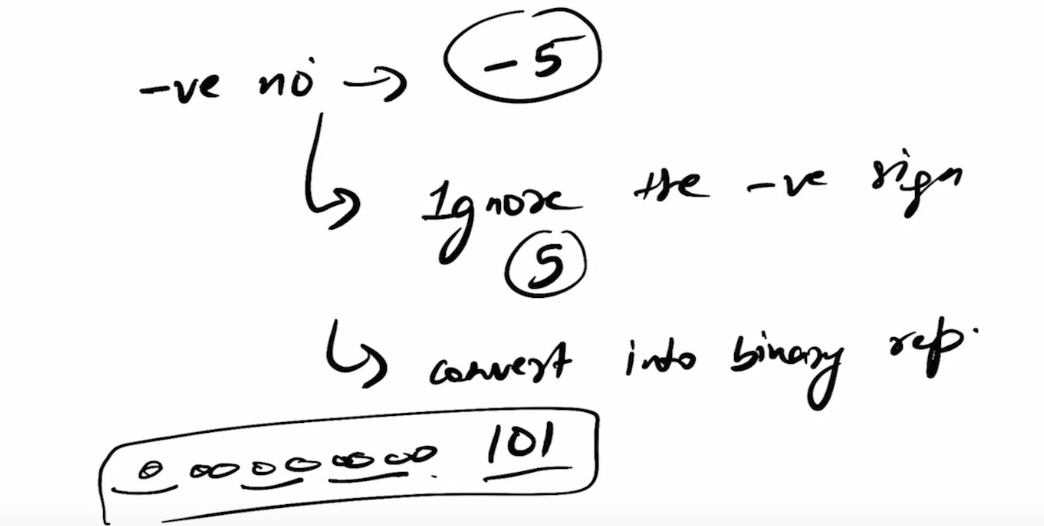 -ve no → -5
Ignore the -ve sign
5
convert into binary rep.
0 00 00 00 00 101